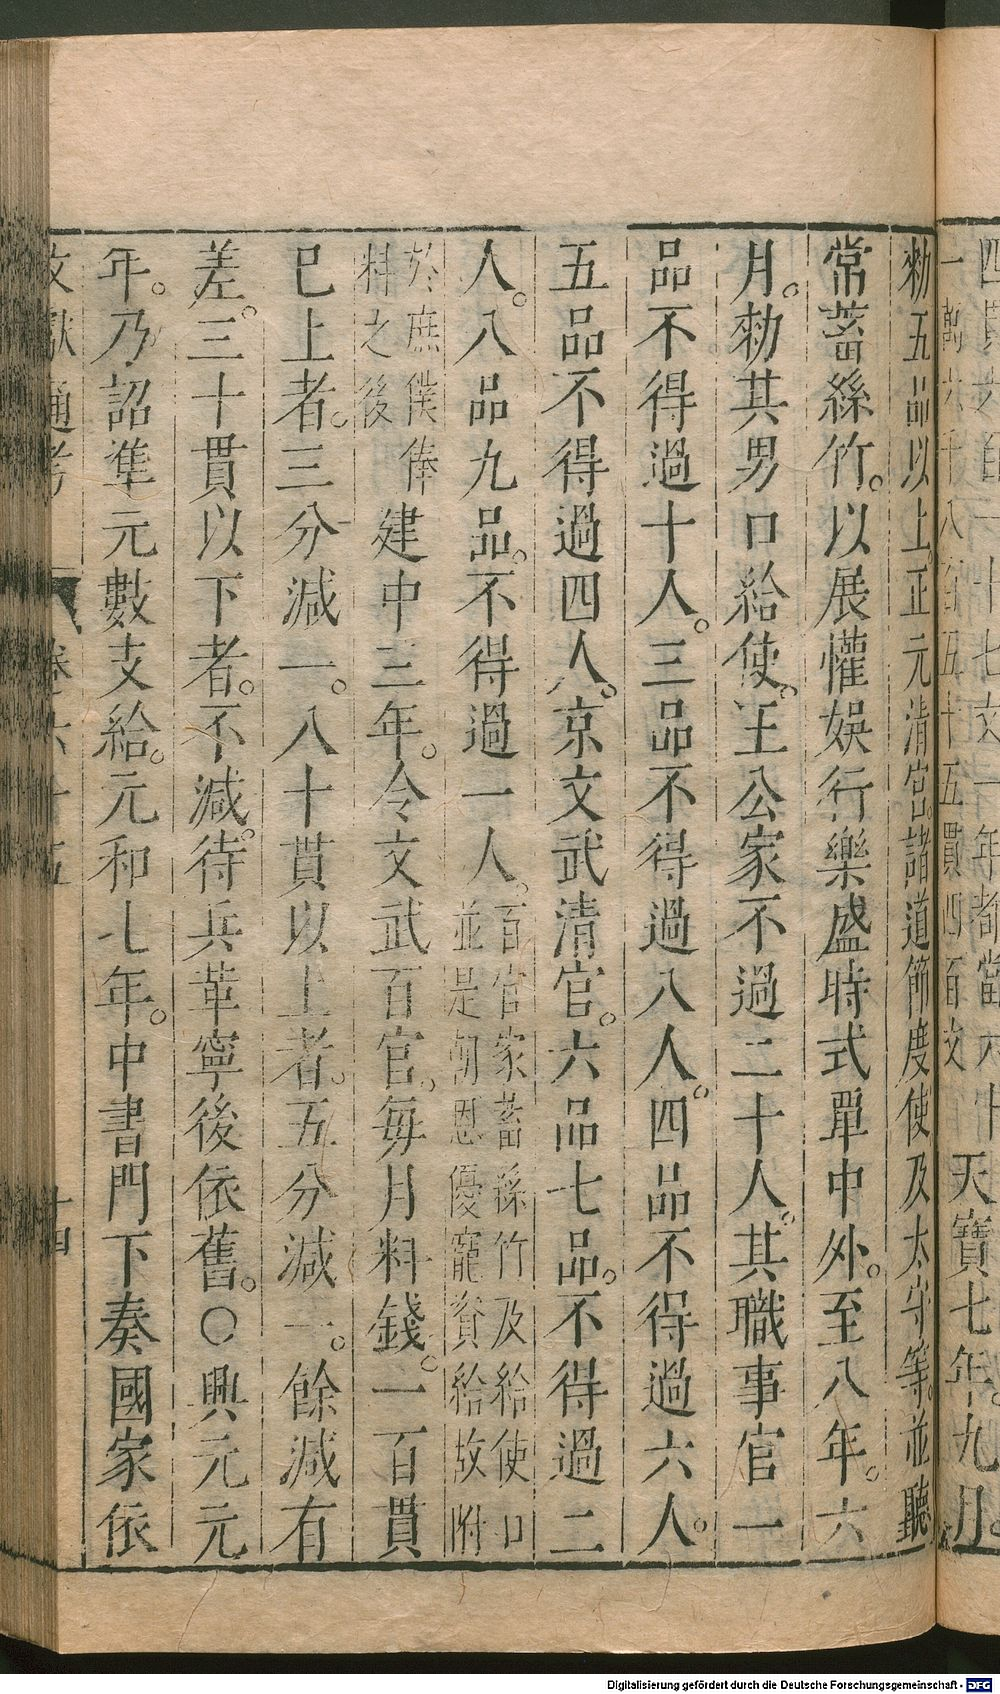 天寶七年。九月。
勑五品以上正元清官。諸道節度使及太守等。並聽
常蓄絲竹。以展懽娛行樂盛時式單中外。至八年。六
月。勑其男口給使。王公家不過二十人。其職事官一
品不得過十人。三品不得過八人。四品不得過六人。
五品不得過四人。京文武清官。六品七品。不得過二
人。八品九品。不得過一人。百官家蓄絲竹及給使口
並是朝恩優寵資給故附
於庶僕俸
料之後建中三年。令文武百官。每月料錢。一百貫
已上者。三分減一。八十貫以上者。五分減一。餘減有
差。三十貫以下者。不減。待兵革寧後依舊。〇興元元
年。乃詔準元數支給。元和七年。中書門下奏國家依
文獻通考 卷六十五 十四
Digitalisierung gefördert durch die Deutsche Forschungsgemeinschaft - DFG